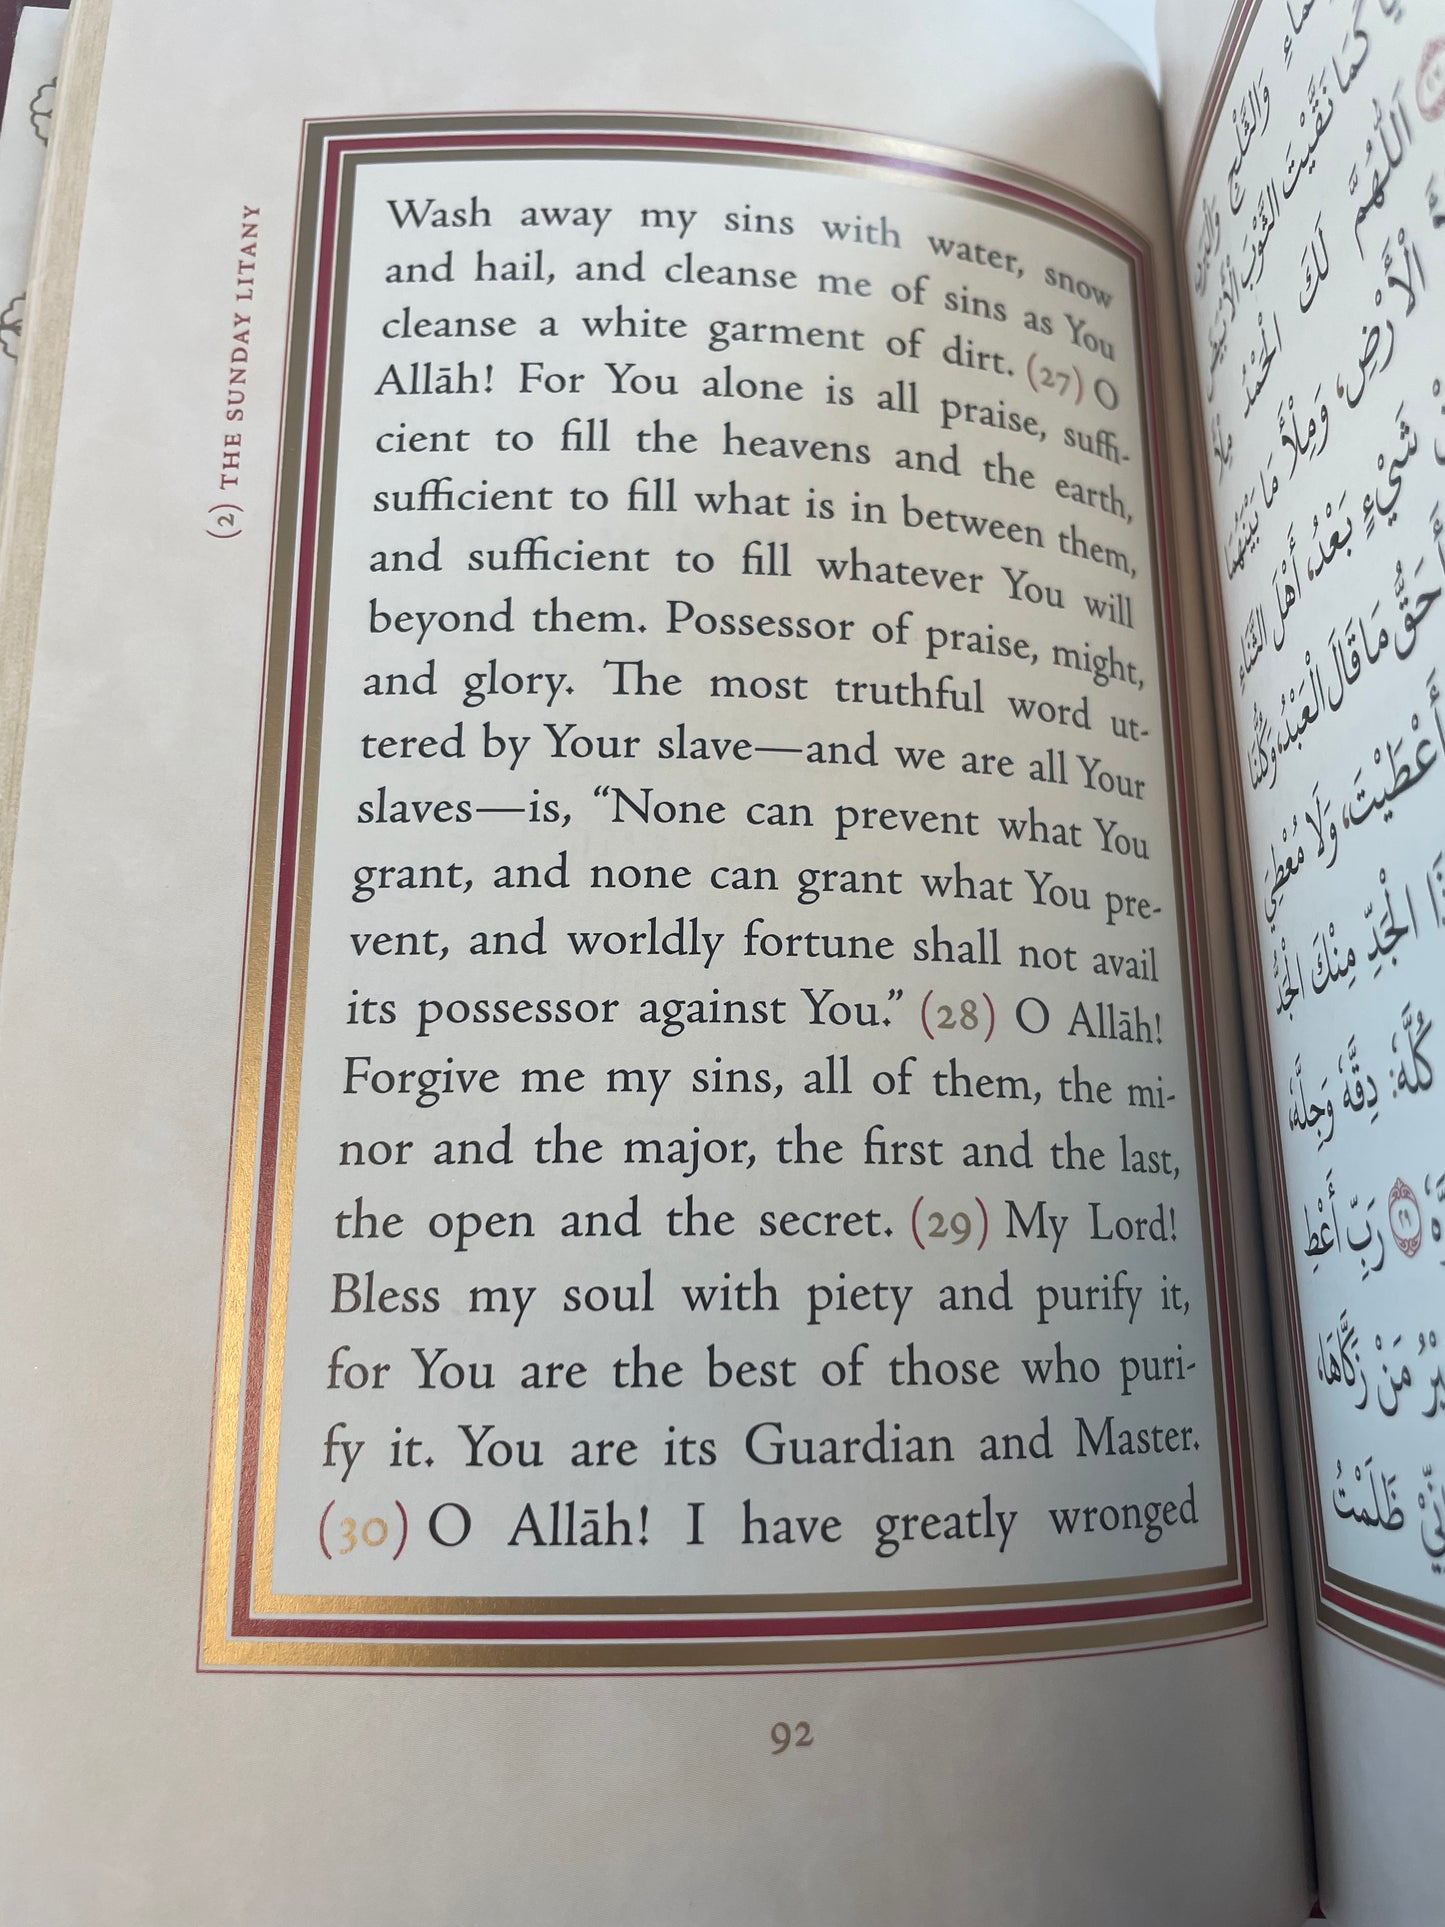 (2) THE SUNDAY LITANY
Wash away my sins with water, snow
and hail, and cleanse me of sins as You
cleanse a white garment of dirt. (27) O
Allāh! For You alone is all praise, suffi-
cient to fill the heavens and the earth,
sufficient to fill what is in between them,
and sufficient to fill whatever You will
beyond them. Possessor of praise, might,
and glory. The most truthful word ut-
tered by Your slave—and we are all Your
slaves—is, “None can prevent what You
grant, and none can grant what You pre-
vent, and worldly fortune shall not avail
its possessor against You.” (28) O Allāh!
Forgive me my sins, all of them, the mi-
nor and the major, the first and the last,
the open and the secret. (29) My Lord!
Bless my soul with piety and purify it,
for You are the best of those who puri-
fy it. You are its Guardian and Master.
(30) O Allāh! I have greatly wronged
92
وَالثَّلْجِ وَالْبَرَدِ
كَمَا نَقَّيْتَ الثَّوْبَ الْأَبْيَضَ
اَللّٰهُمَّ لَكَ الْحَمْدُ مِلْأَ
الْأَرْضِ، وَمِلْأَ مَا بَيْنَهُمَا
شَيْءٍ بَعْدُ، أَهْلَ الثَّنَاءِ
أَحَقُّ مَا قَالَ الْعَبْدُ، وَكُلُّنَا
أَعْطَيْتَ، وَلَا مُعْطِيَ
الْجَدِّ مِنْكَ الْجَدُّ
كُلَّهُ: دِقَّهُ وَجِلَّهُ،
٢٩ رَبِّ أَعْطِ
مَنْ زَكَّاهَا،
ظَلَمْتُ